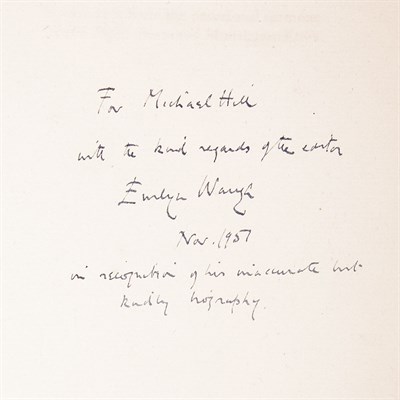 For Michael Hill
with the kind regards of the editor
Evelyn Waugh
Nov. 1957
in recognition of his inaccurate but
kindly biography.